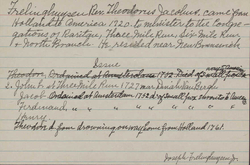 Frelinghuysen Rev. Theodorus Jacobus, came from
Holland to America 1720, to minister to the Congre-
gations of Raritan, Three Mile Run, Six Mile Run
& North Branch. He resided near New Brunswick
Issue
Theodore, Ordained at Amsterdam
2. John b. at Three Mile Run 1727 mar Dinah Van Bergh
Jacob Ordained at Amsterdam
Ferdinand,
Henry
Theodore d from drowning on way home from Holland 1761.
Joseph Frelinghuysen Jr.